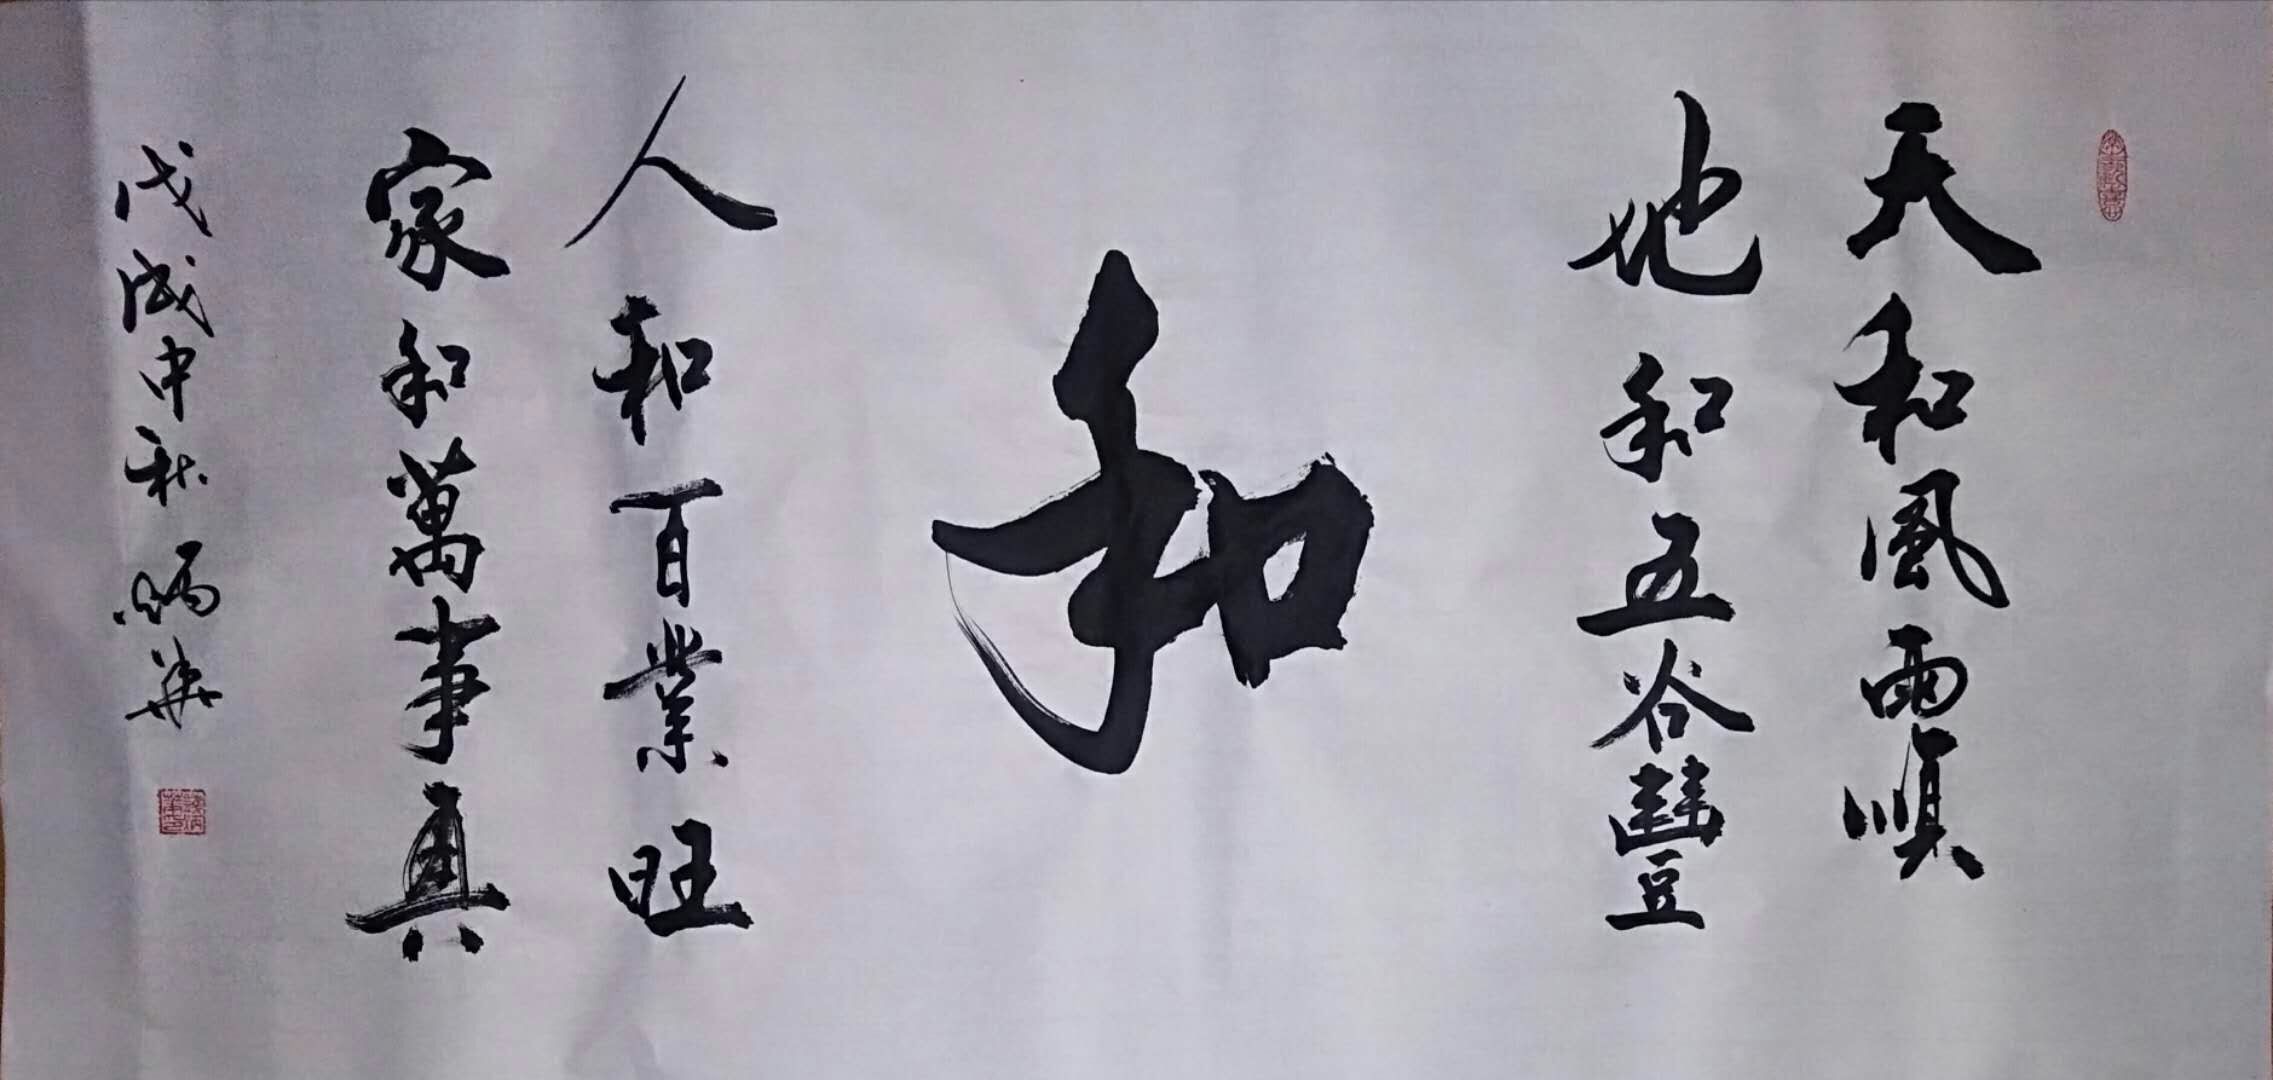 天和風雨順
地和五谷豐
和
人和百業旺
家和萬事興
戊戌中秋 炳華